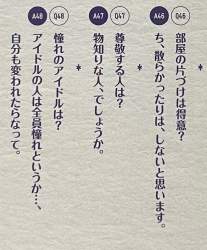 Q46
A46
部屋の片づけは得意？
ち、散らかったりは、しないと思います。
*
Q47
A47
尊敬する人は？
物知りな人、でしょうか。
*
Q48
A48
憧れのアイドルは？
アイドルの人は全員憧れというか…、
自分も変われたらなって。
*